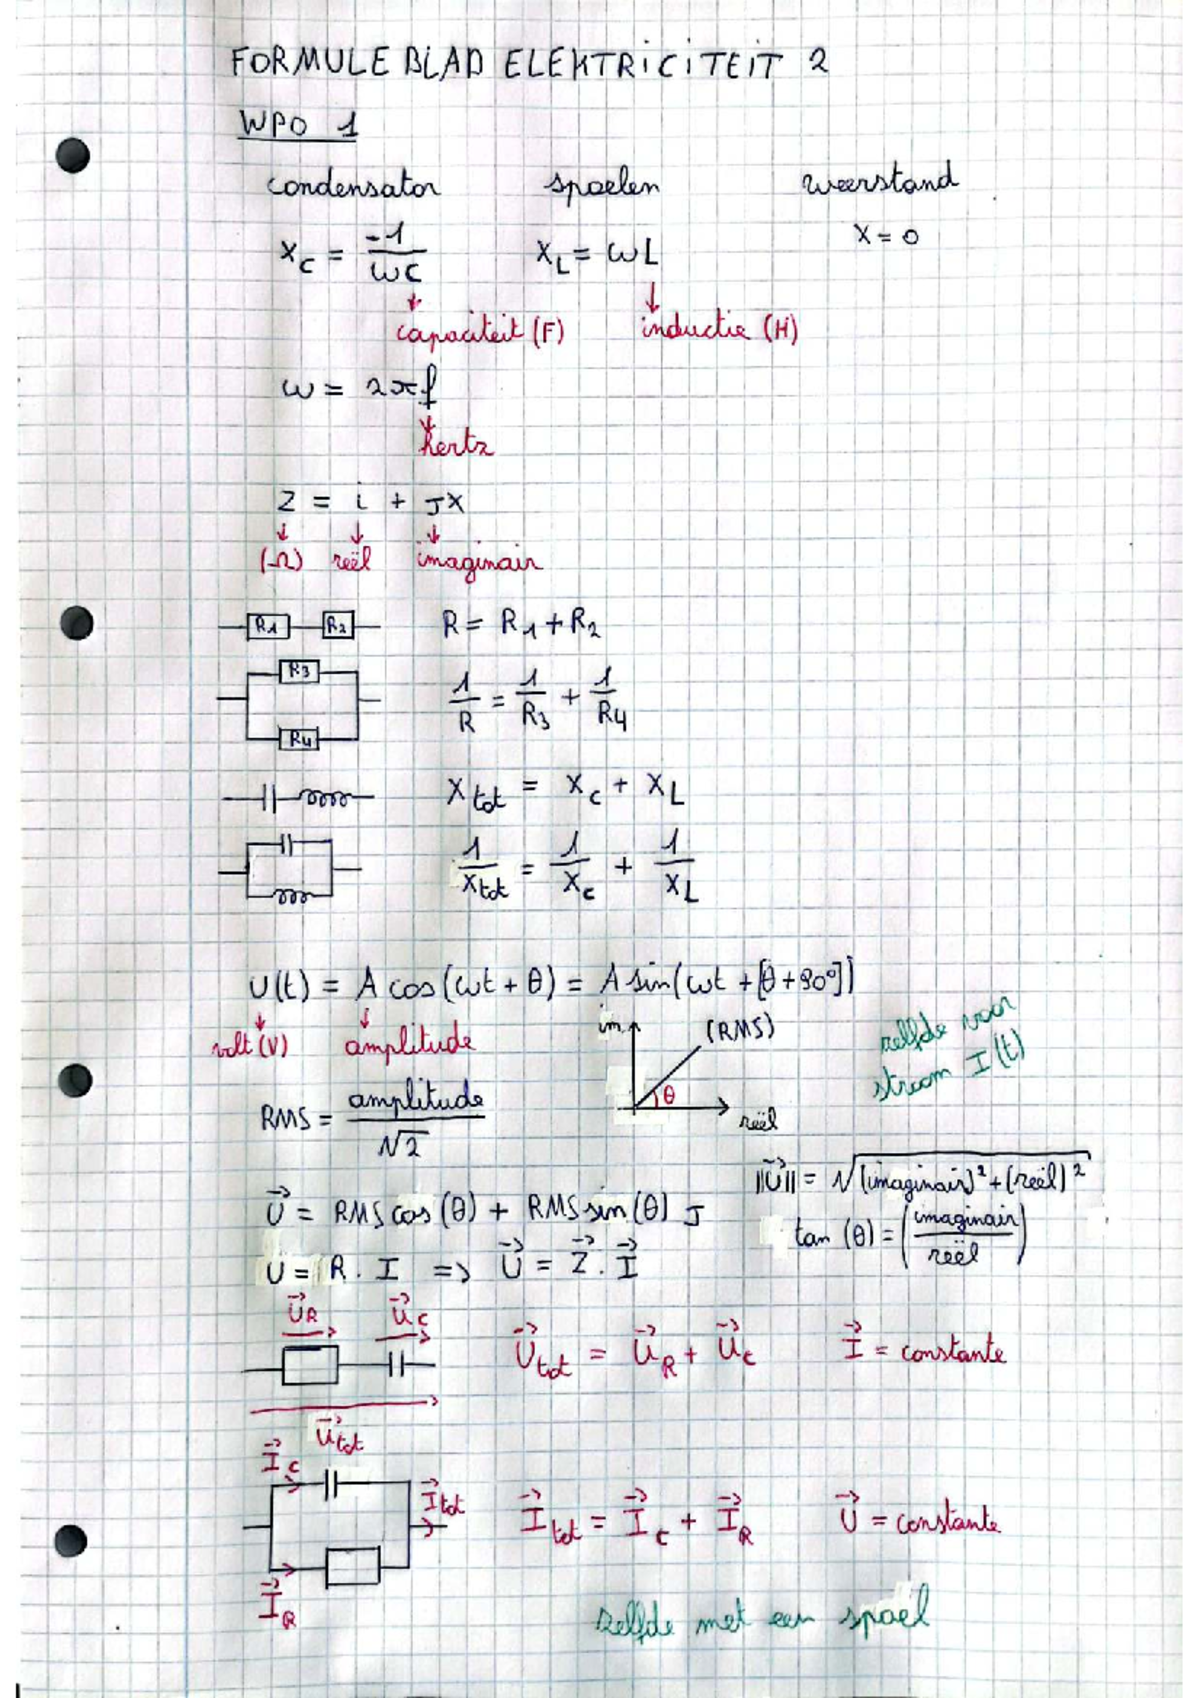 FORMULE BLAD ELEKTRICITEIT 2
WPO 1
condensator spoelen weerstand
X_C = -1/ωC X_L = ωL X = 0
capaciteit (F) inductie (H)
ω = 2πf
hertz
Z = i + JX
(Ω) reël imaginair
R1 R2 R = R1 + R2
R3
1/R = 1/R3 + 1/R4
R4
X_tot = X_C + X_L
1/X_tot = 1/X_C + 1/X_L
U(t) = A cos(ωt + θ) = A sin(ωt + [θ+90°])
volt (V) amplitude
im (RMS)
θ
reël
zelfde voor
stroom I(t)
RMS = amplitude/√2
||U⃗|| = √(imaginair)² + (reël)²
U⃗ = RMS cos(θ) + RMS sin(θ) J
tan(θ) = (imaginair/reël)
U = R . I => U⃗ = Z⃗ . I⃗
U⃗_R U⃗_C
U⃗_tot = U⃗_R + U⃗_C I⃗ = constante
U⃗_tot
I⃗_C
I⃗_tot
I⃗_tot = I⃗_C + I⃗_R U⃗ = constante
I⃗_R
zelfde met een spoel